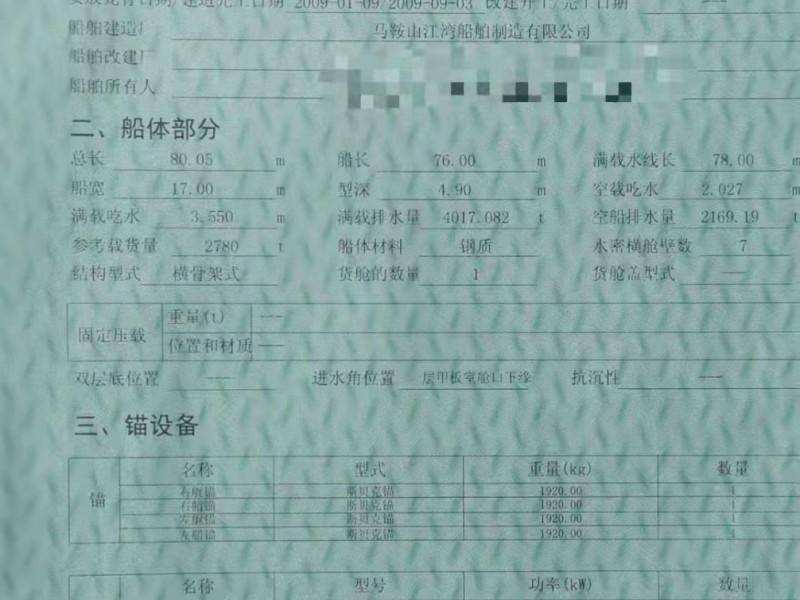 安放龙骨日期/建造完工日期 2009-01-09/2009-09-03 改建开工/完工日期 ---
船舶建造厂 马鞍山江湾船舶制造有限公司
船舶改建厂
船舶所有人
二、船体部分
总长 80.05 m 船长 76.00 m 满载水线长 78.00 m
船宽 17.00 m 型深 4.90 m 空载吃水 2.027 m
满载吃水 3.550 m 满载排水量 4017.082 t 空船排水量 2169.19 t
参考载货量 2780 t 船体材料 钢质 水密横舱壁数 7
结构型式 横骨架式 货舱的数量 1 货舱盖型式 ---
固定压载 重量(t) ---
位置和材质 ---
双层底位置 --- 进水角位置 甲板室舱口下缘 抗沉性 ---
三、锚设备
锚 名称 型式 重量(kg) 数量
右艏锚 斯贝克锚 1920.00 1
右船锚 斯贝克锚 1920.00 1
左艏锚 斯贝克锚 1920.00 1
左船锚 斯贝克锚 1920.00 1
名称 型号 功率(kW) 数量